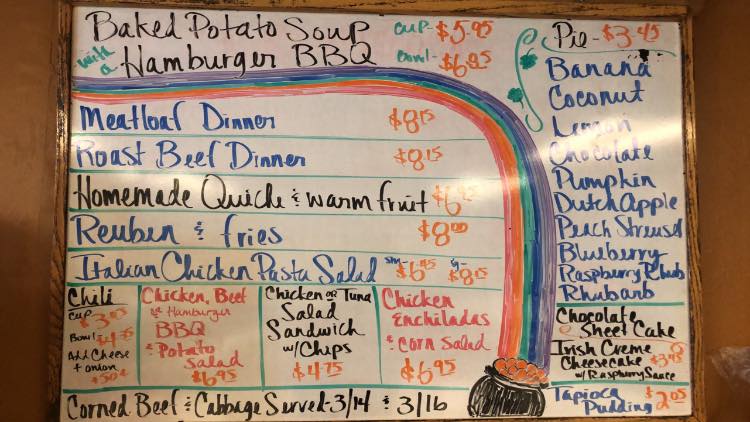 Baked Potato Soup cup- $5.95
with a Hamburger BBQ bowl- $6.25
Meatloaf Dinner $8.15
Roast Beef Dinner $8.15
Homemade Quiche & warm fruit $6.95
Reuben & fries $8.00
Italian Chicken Pasta Salad sm- $6.45 lg- $8.15
Chili
cup
Bowl
Add Cheese
+ onion
50¢
Chicken, Beef
or Hamburger
BBQ
& Potato
Salad
$6.95
Chicken or Tuna
Salad
Sandwich
w/Chips
$4.75
Chicken
Enchiladas
& Corn Salad
$6.95
Corned Beef & Cabbage Served-3/14 & 3/16
Pie- $3.45
Banana
Coconut
Lemon
Chocolate
Pumpkin
Dutch Apple
Peach Streusel
Blueberry
Raspberry Rhub
Rhubarb
Chocolate
Sheet Cake
Irish Creme
Cheesecake $3.95
w/Raspburry Sauce
Tapioca $2.05
Pudding